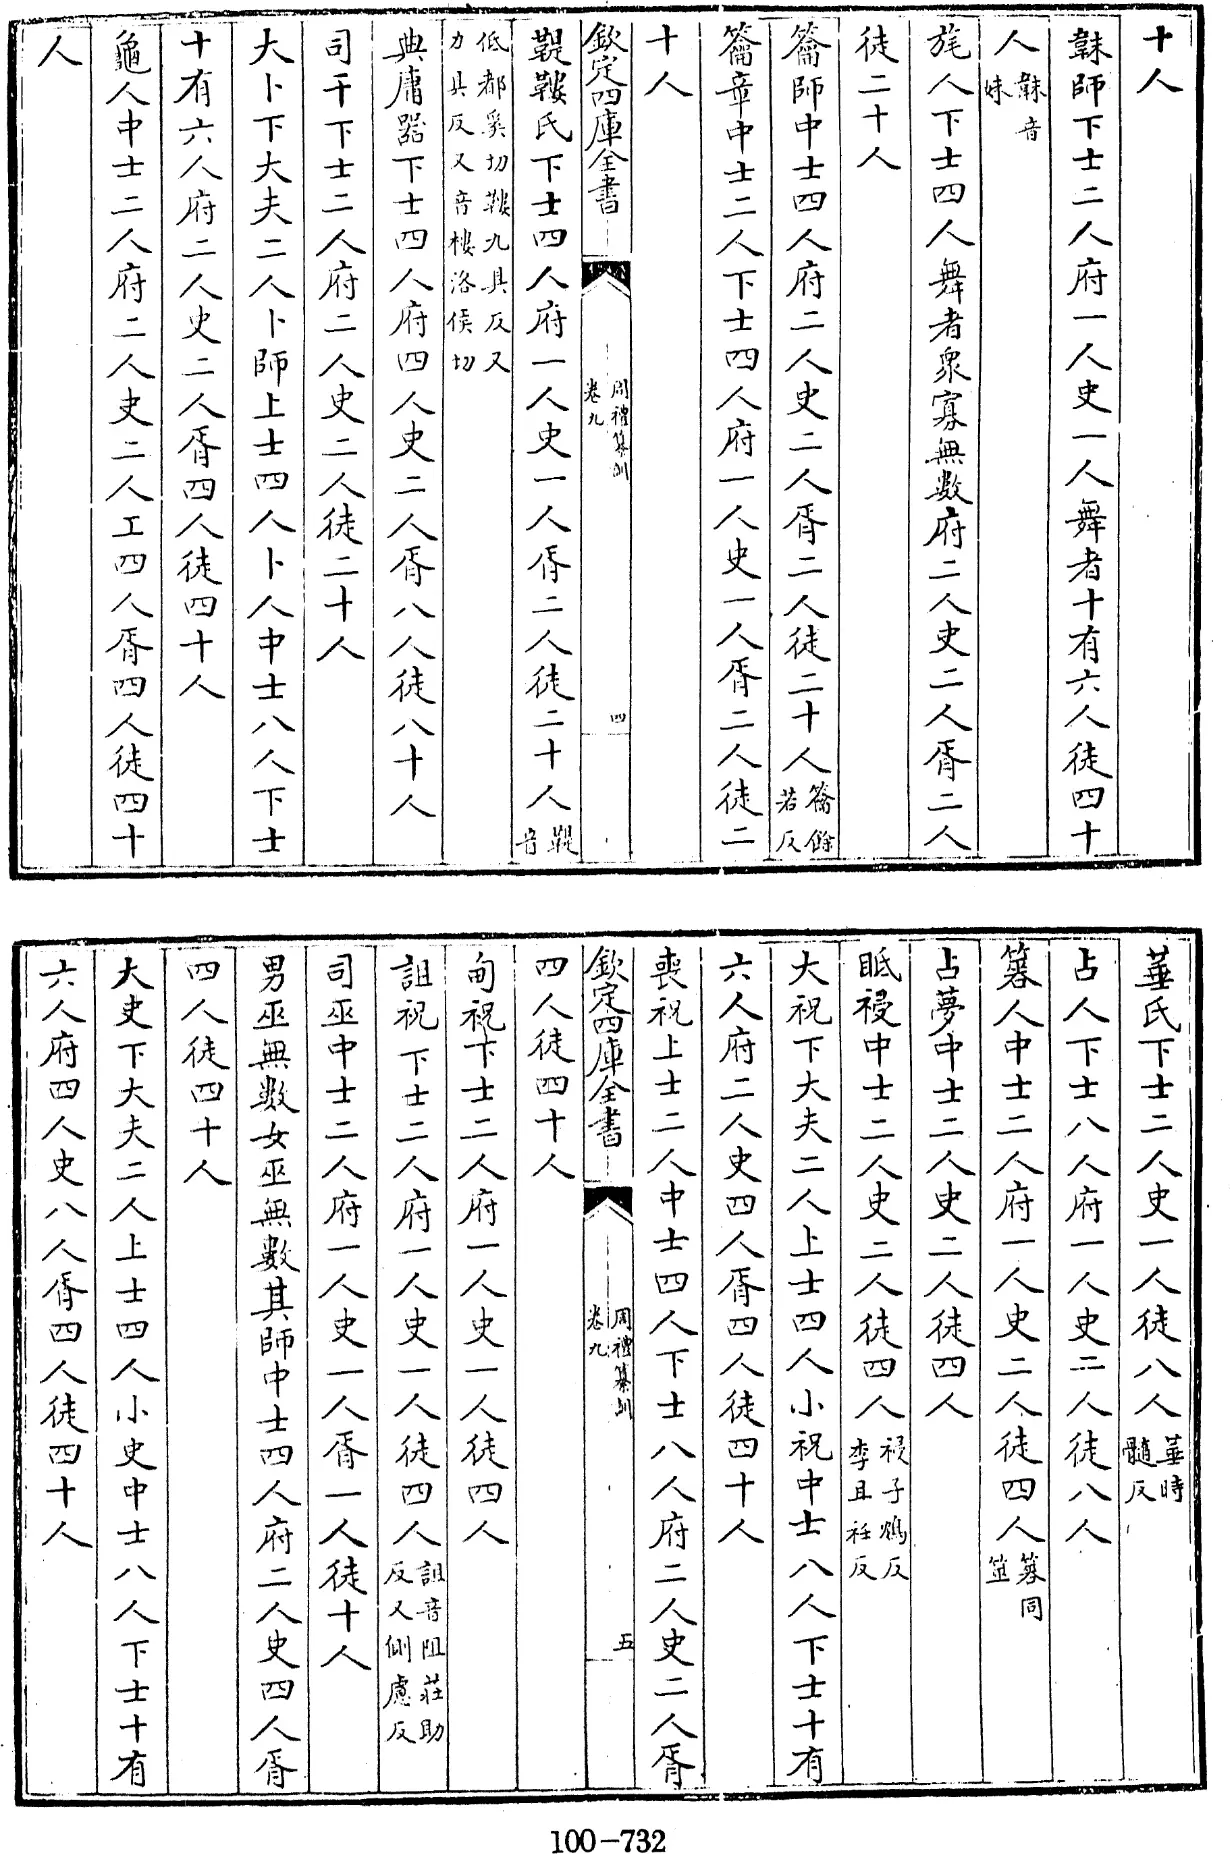 十人
韎師下士二人府一人史一人舞者十有六人徒四十
人韎音妹
旄人下士四人舞者衆寡無數府二人史二人胥二人
徒二十人
籥師中士四人府二人史二人胥二人徒二十人籥餘若反
籥章中士二人下士四人府一人史一人胥二人徒二
十人
欽定四庫全書 周禮纂訓 卷九 四
鞮鞻氏下士四人府一人史一人胥二人徒二十人鞮音
低都奚切鞻九具反又力具反又音樓洛侯切
典庸器下士四人府四人史二人胥八人徒八十人
司干下士二人府二人史二人徒二十人
大卜下大夫二人卜師上士四人卜人中士八人下士
十有六人府二人史二人胥四人徒四十人
龜人中士二人府二人史二人工四人胥四人徒四十
人
菙氏下士二人史一人徒八人菙時髓反
占人下士八人府一人史二人徒八人
簭人中士二人府一人史二人徒四人簭同筮
占夢中士二人史二人徒四人
眡祲中士二人史二人徒四人祲子鴆反李且衽反
大祝下大夫二人上士四人小祝中士八人下士十有
六人府二人史四人胥四人徒四十人
喪祝上士二人中士四人下士八人府二人史二人胥
欽定四庫全書 周禮纂訓 卷九 五
四人徒四十人
甸祝下士二人府一人史一人徒四人
詛祝下士二人府一人史一人徒四人詛音阻莊助反又側慮反
司巫中士二人府一人史一人胥一人徒十人
男巫無數女巫無數其師中士四人府二人史四人胥
四人徒四十人
大史下大夫二人上士四人小史中士八人下士十有
六人府四人史八人胥四人徒四十人
100-732